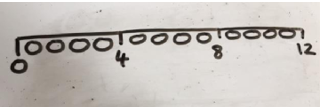 0 4 8 12